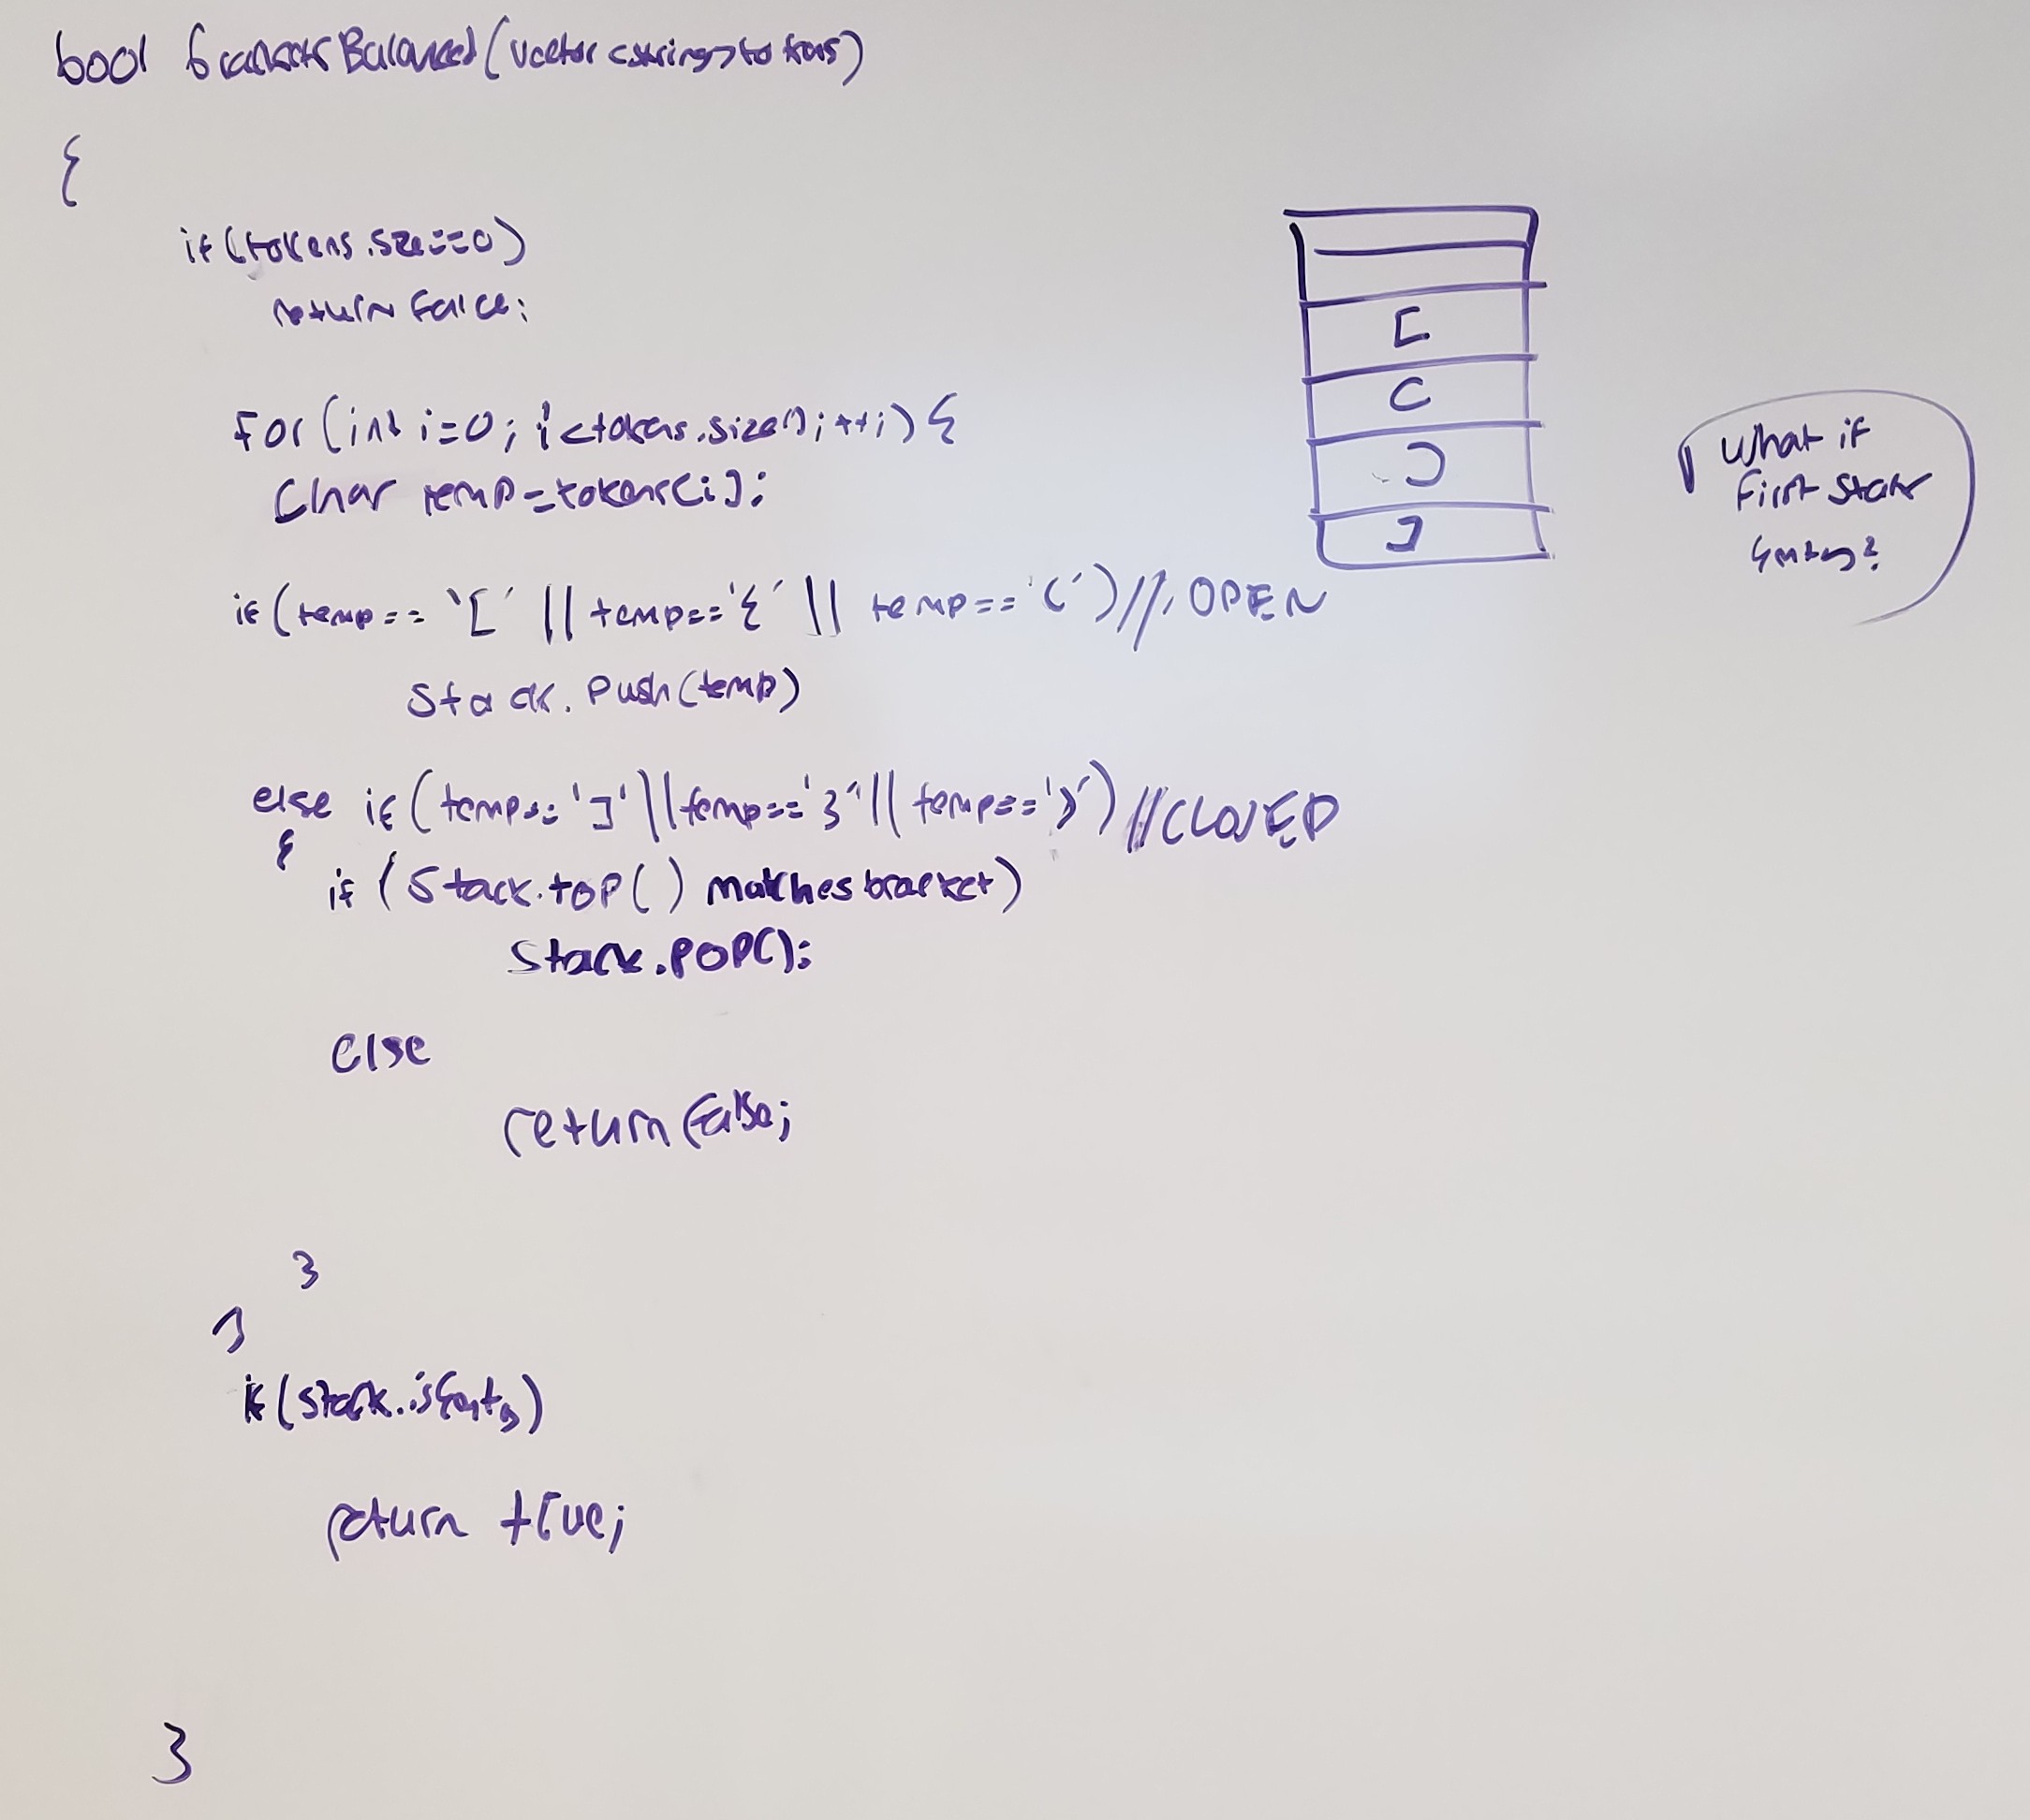 bool bracketsBalanced(vector<string>tokens)
{
if(tokens.size==0)
return false;
For(int i=0; i<tokens.size();++i){
Char temp=tokens[i];
if(temp=='[' || temp=='{' || temp=='(')//OPEN
Stack.Push(temp)
else if(temp==']'||temp=='}'||temp==')')//CLOSED
{
if (Stack.top() matches bracket)
Stack.POP();
else
return false;
}
}
if(stack.isEmty)
return true;
}
[
(
)
]
What if
First Stack
Emty?